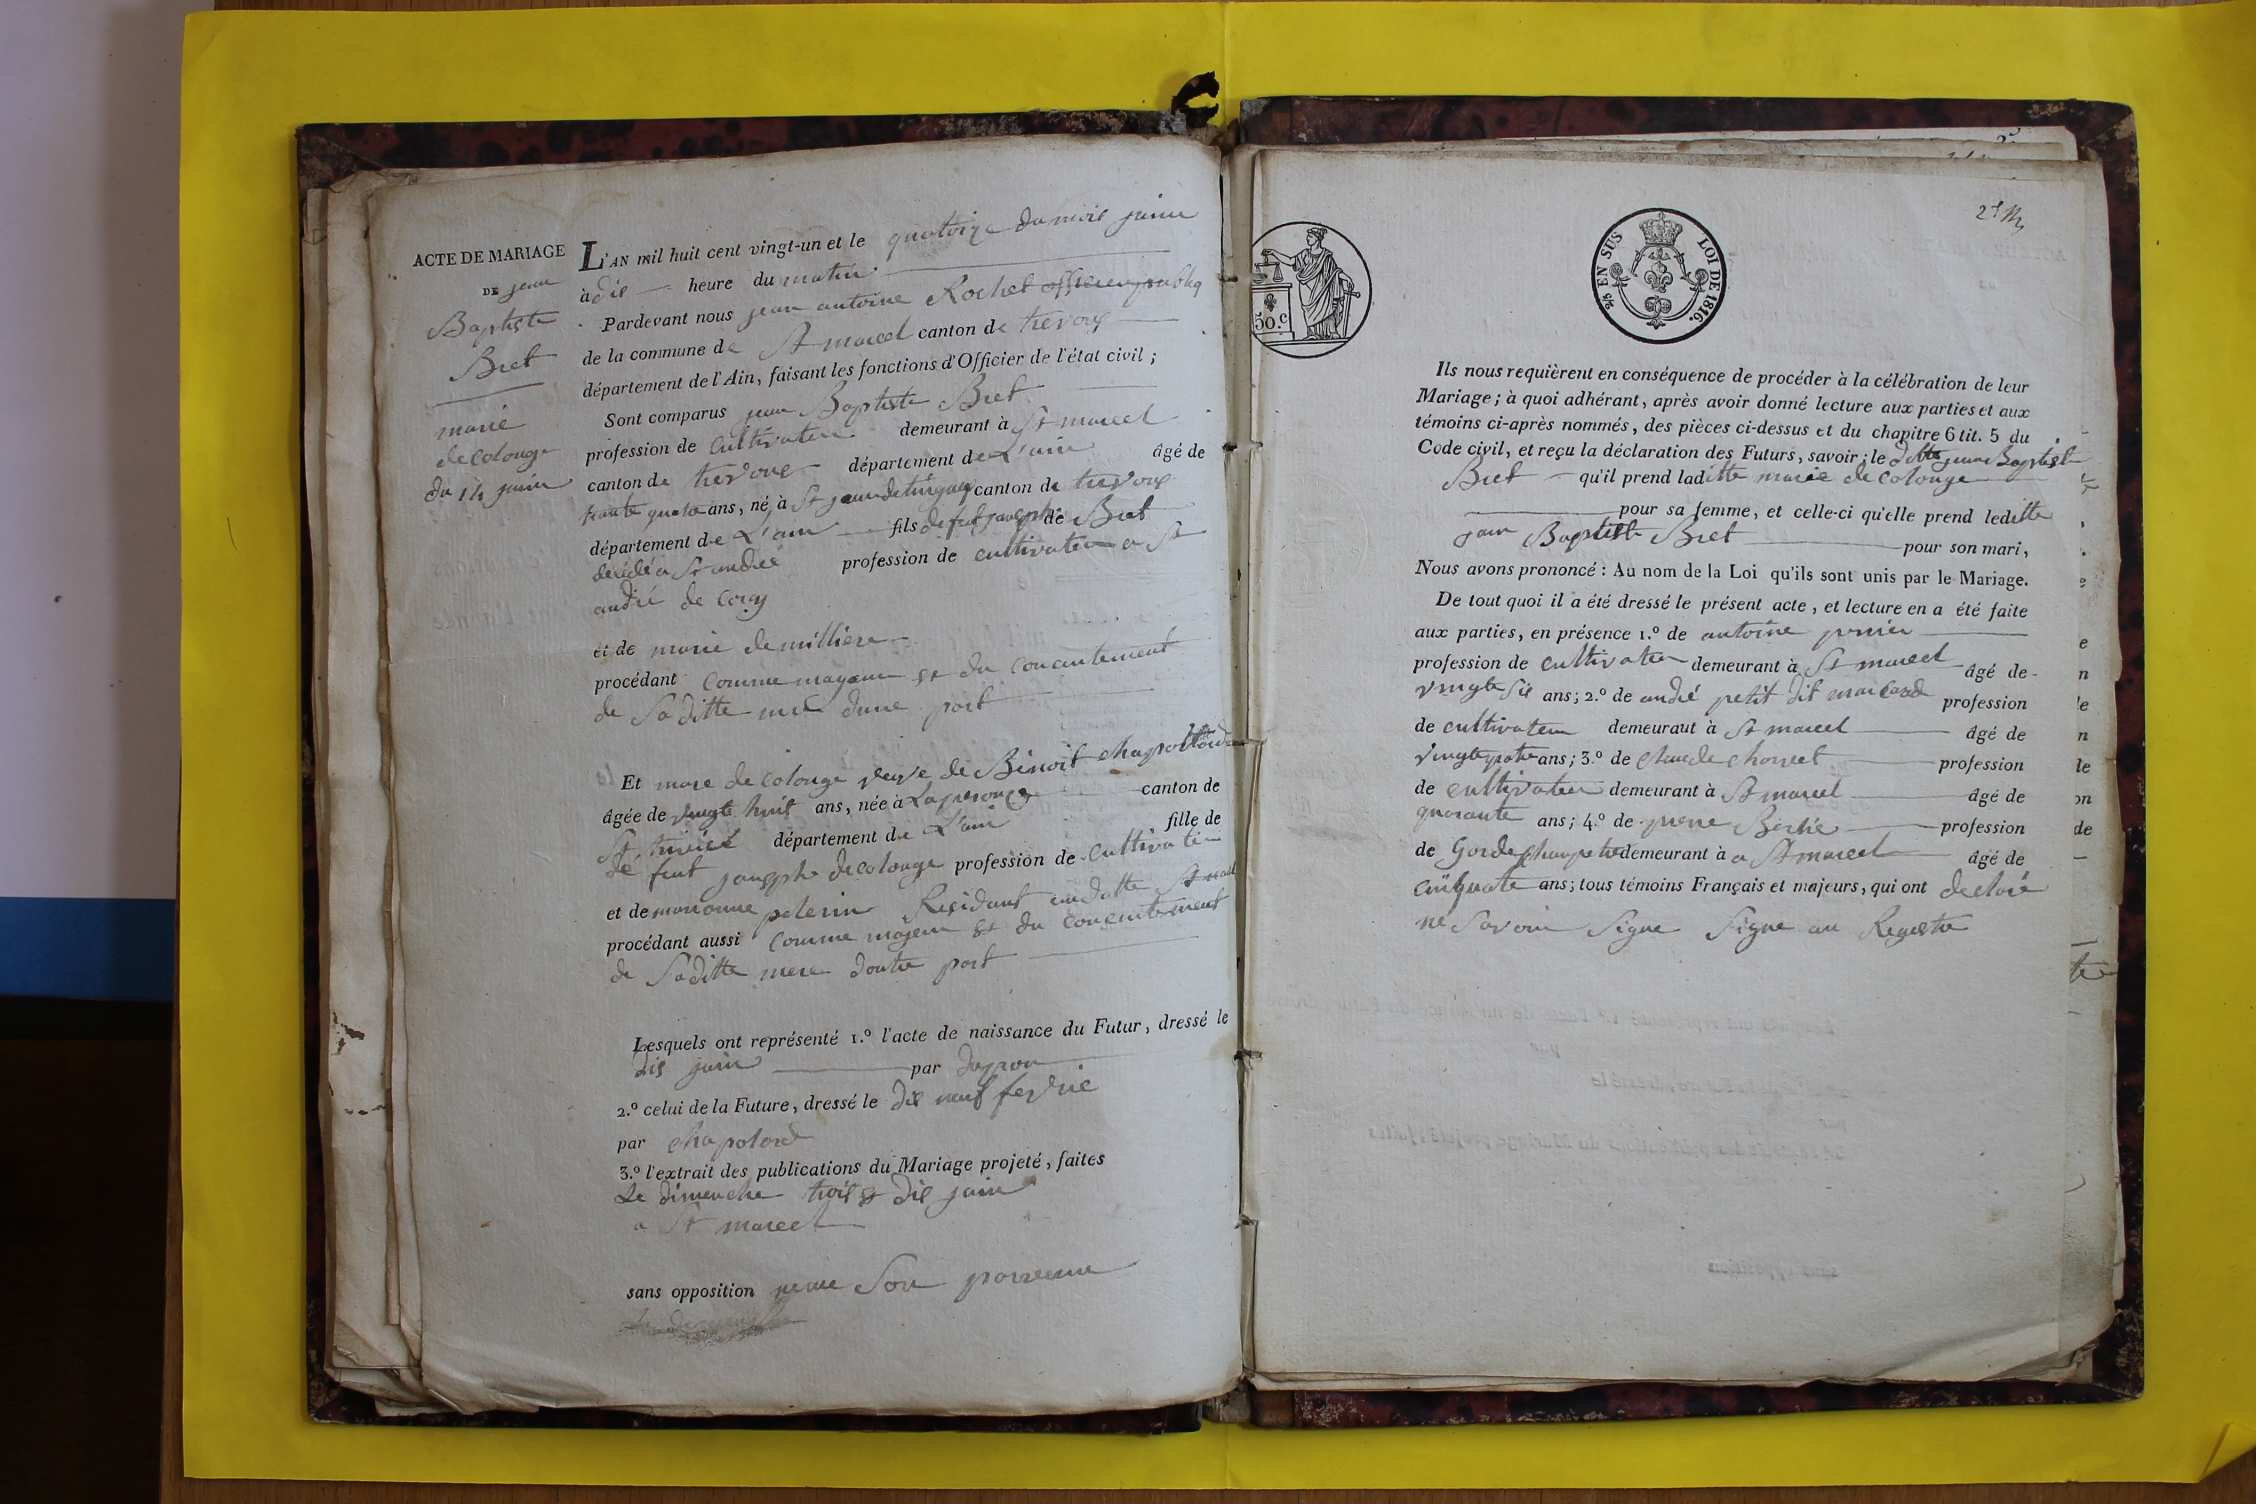 ACTE DE MARIAGE
DE jean
Baptiste
Bret
marie
decolonge
du 14 juin
L'AN mil huit cent vingt-un et le quatorze du mois juin
à dis heure du matin
Pardevant nous jean antoine Rochet officier publiq
de la commune de St marcel canton de trevoux
département de l'Ain, faisant les fonctions d'Officier de l'état civil ;
Sont comparus jean Baptiste Bret
profession de Cultivateur demeurant à St marcel
canton de trevoux département de L'ain âgé de
trante quatre ans, né à St jean canton de trevoux
département de L'ain fils de feut joseph de Bret
décédé a St andré profession de cultivateur a St
andré de Corcy
et de marie demillière
procédant comme mageur et du concentement
de Saditte mere dune part
Et marie decolonge veuve de Benoit
âgée de vingte huit ans, née à Laperouze canton de
St département de L'ain fille de
dé feut joseph decolonge profession de Cultivateur
et de marianne pelerin Residant St marcel
procédant aussi comme mageur et du concentement
de Saditte mere doutre part
Lesquels ont représenté 1.° l'acte de naissance du Futur, dressé le
dis juin par
2.° celui de la Future, dressé le dis neuf fevrié
par
3.° l'extrait des publications du Mariage projeté, faites
Le dimenche trois et dis juin
a St marcel
sans opposition
2d
2/10 EN SUS
LOI DE 1816.
50.c
Ils nous requièrent en conséquence de procéder à la célébration de leur
Mariage ; à quoi adhérant, après avoir donné lecture aux parties et aux
témoins ci-après nommés, des pièces ci-dessus et du chapitre 6 tit. 5 du
Code civil, et reçu la déclaration des Futurs, savoir : le ditte jean Baptiste
Bret qu'il prend laditte marie decolonge
pour sa femme, et celle-ci qu'elle prend leditte
jean Baptiste Bret pour son mari,
Nous avons prononcé : Au nom de la Loi qu'ils sont unis par le Mariage.
De tout quoi il a été dressé le présent acte, et lecture en a été faite
aux parties, en présence 1.° de antoine
profession de cultivateur demeurant à St marcel âgé de
vingte sis ans ; 2.° de andré petit dit profession
de cultivateur demeuraut à St marcel âgé de
ans ; 3.° de claude profession
de cultivateur demeurant à St marcel âgé de
quarante ans ; 4.° de pierre profession
de Garde Champetre demeurant à a St marcel âgé de
cinquate ans ; tous témoins Français et majeurs, qui ont declaré
ne Savoir Signe Signe au Registre